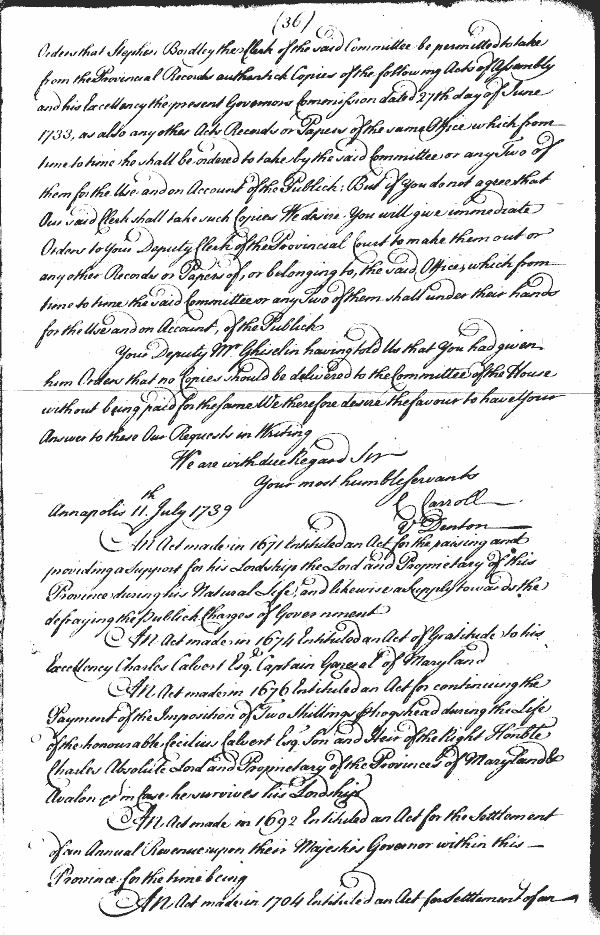 (36)
Orders that Stephen Bordley the Clerk of the said Committee be permitted to take
from the Provincial Records authentick Copies of the following Acts of Assembly
and his Excellency the present Governors Commission dated 27th day of June
1733, as also any other Acts Records or Papers of the same Office which from
time to time he shall be ordered to take by the said Committee or any Two of
them for the Use and on Account of the Publick; But if You do not agree that
Our said Clerk shall take such Copies We desire You will give immediate
Orders to Your Deputy Clerk of the Provincial Court to make them out or
any other Records or Papers of, or belonging to, the said Office, which from
time to time the said Committee or any Two of them shall under their hands
for the Use and on Account, of the Publick
Your Deputy Mr Ghiselin having told Us that You had given
him Orders that no Copies should be delivered to the Committee of the House
without being paid for the same We therefore desire the favour to have Your
Answer to these Our Requests in Writing
We are with due Regard Sir
Your most humble Servants
Annapolis 11th July 1739
C Carroll
V Denton
An Act made in 1671 Entituled an Act for the raising and
providing a Support for his Lordship the Lord and Proprietary of this
Province during his Natural Life, and likewise a Supply towards the
defraying the Publick Charges of Government
An Act made in 1674 Entituled an Act of Gratitude to his
Excellency Charles Calvert Esqr. Captain General of Maryland
An Act made in 1676 Entituled an Act for continuing the
Payment of the Imposition of Two Shillings hogshead during the Life
of the honourable Cecilius Calvert Esq Son and Heir of the Right Honble
Charles Absolute Lord and Proprietary of the Provinces of Maryland &
Avalon in Case he survives his Lordship
An Act made in 1692 Entituled an Act for the Settlement
of an Annual Revenue upon their Majestis Governor within this
Province for the time being
An Act made in 1704 Entituled an Act for Settlement of an